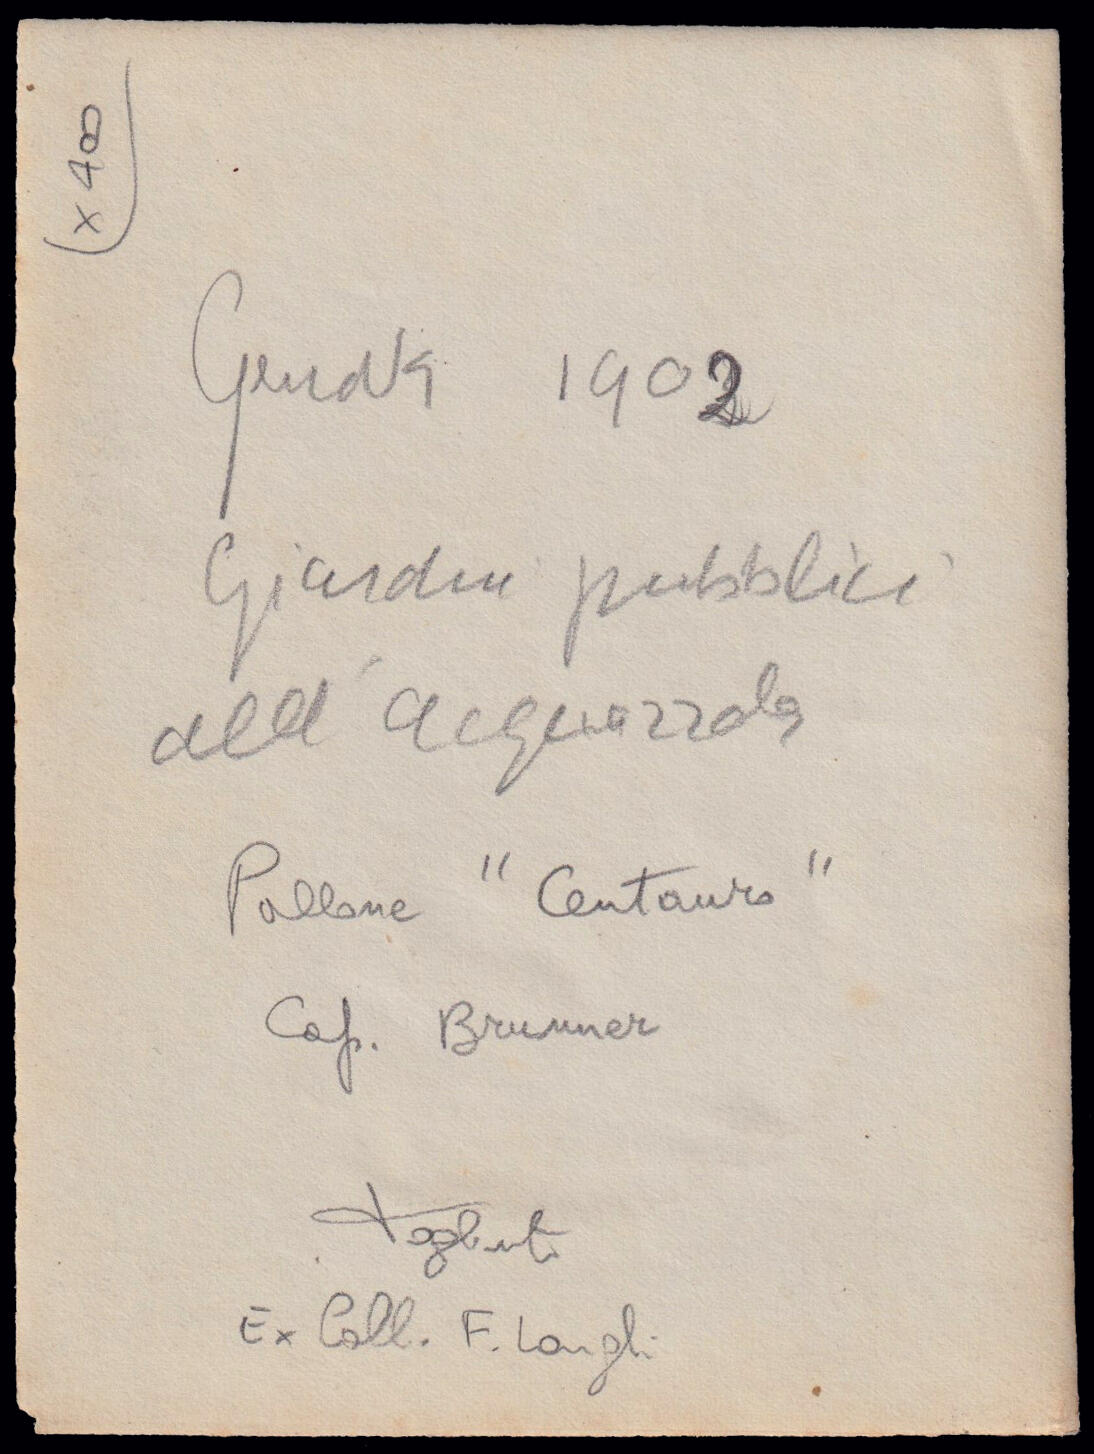 x 400
Genova 1902
Giardini pubblici
all'Acquazzola
Pallone "Centauro"
Cap. Brunner
Ex Coll. F. Longhi